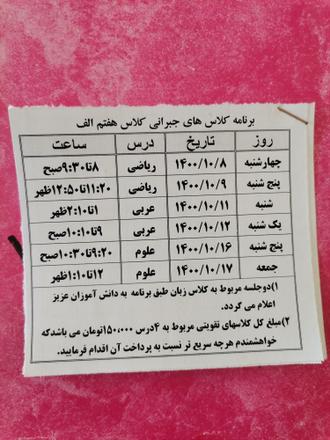 برنامه کلاس های جبرانی کلاس هفتم الف
روز تاریخ درس ساعت
چهارشنبه ۱۴۰۰/۱۰/۸ ریاضی ۸تا۹:۳۰صبح
پنج شنبه ۱۴۰۰/۱۰/۹ ریاضی ۱۱:۲۰تا۱۲:۵۰ظهر
شنبه ۱۴۰۰/۱۰/۱۱ عربی ۱تا۲:۱۰ظهر
یک شنبه ۱۴۰۰/۱۰/۱۲ عربی ۹تا۱۰:۱۰صبح
پنج شنبه ۱۴۰۰/۱۰/۱۶ علوم ۹:۲۰تا۱۰:۳۰صبح
جمعه ۱۴۰۰/۱۰/۱۷ علوم ۱۲تا۱:۱۰ظهر
۱)دوجلسه مربوط به کلاس زبان طبق برنامه به دانش آموزان عزیز
اعلام می گردد.
۲)مبلغ کل کلاسهای تقویتی مربوط به ۴درس ۱۵۰،۰۰۰تومان می باشدکه
خواهشمندم هرچه سریع تر نسبت به پرداخت آن اقدام فرمایید.